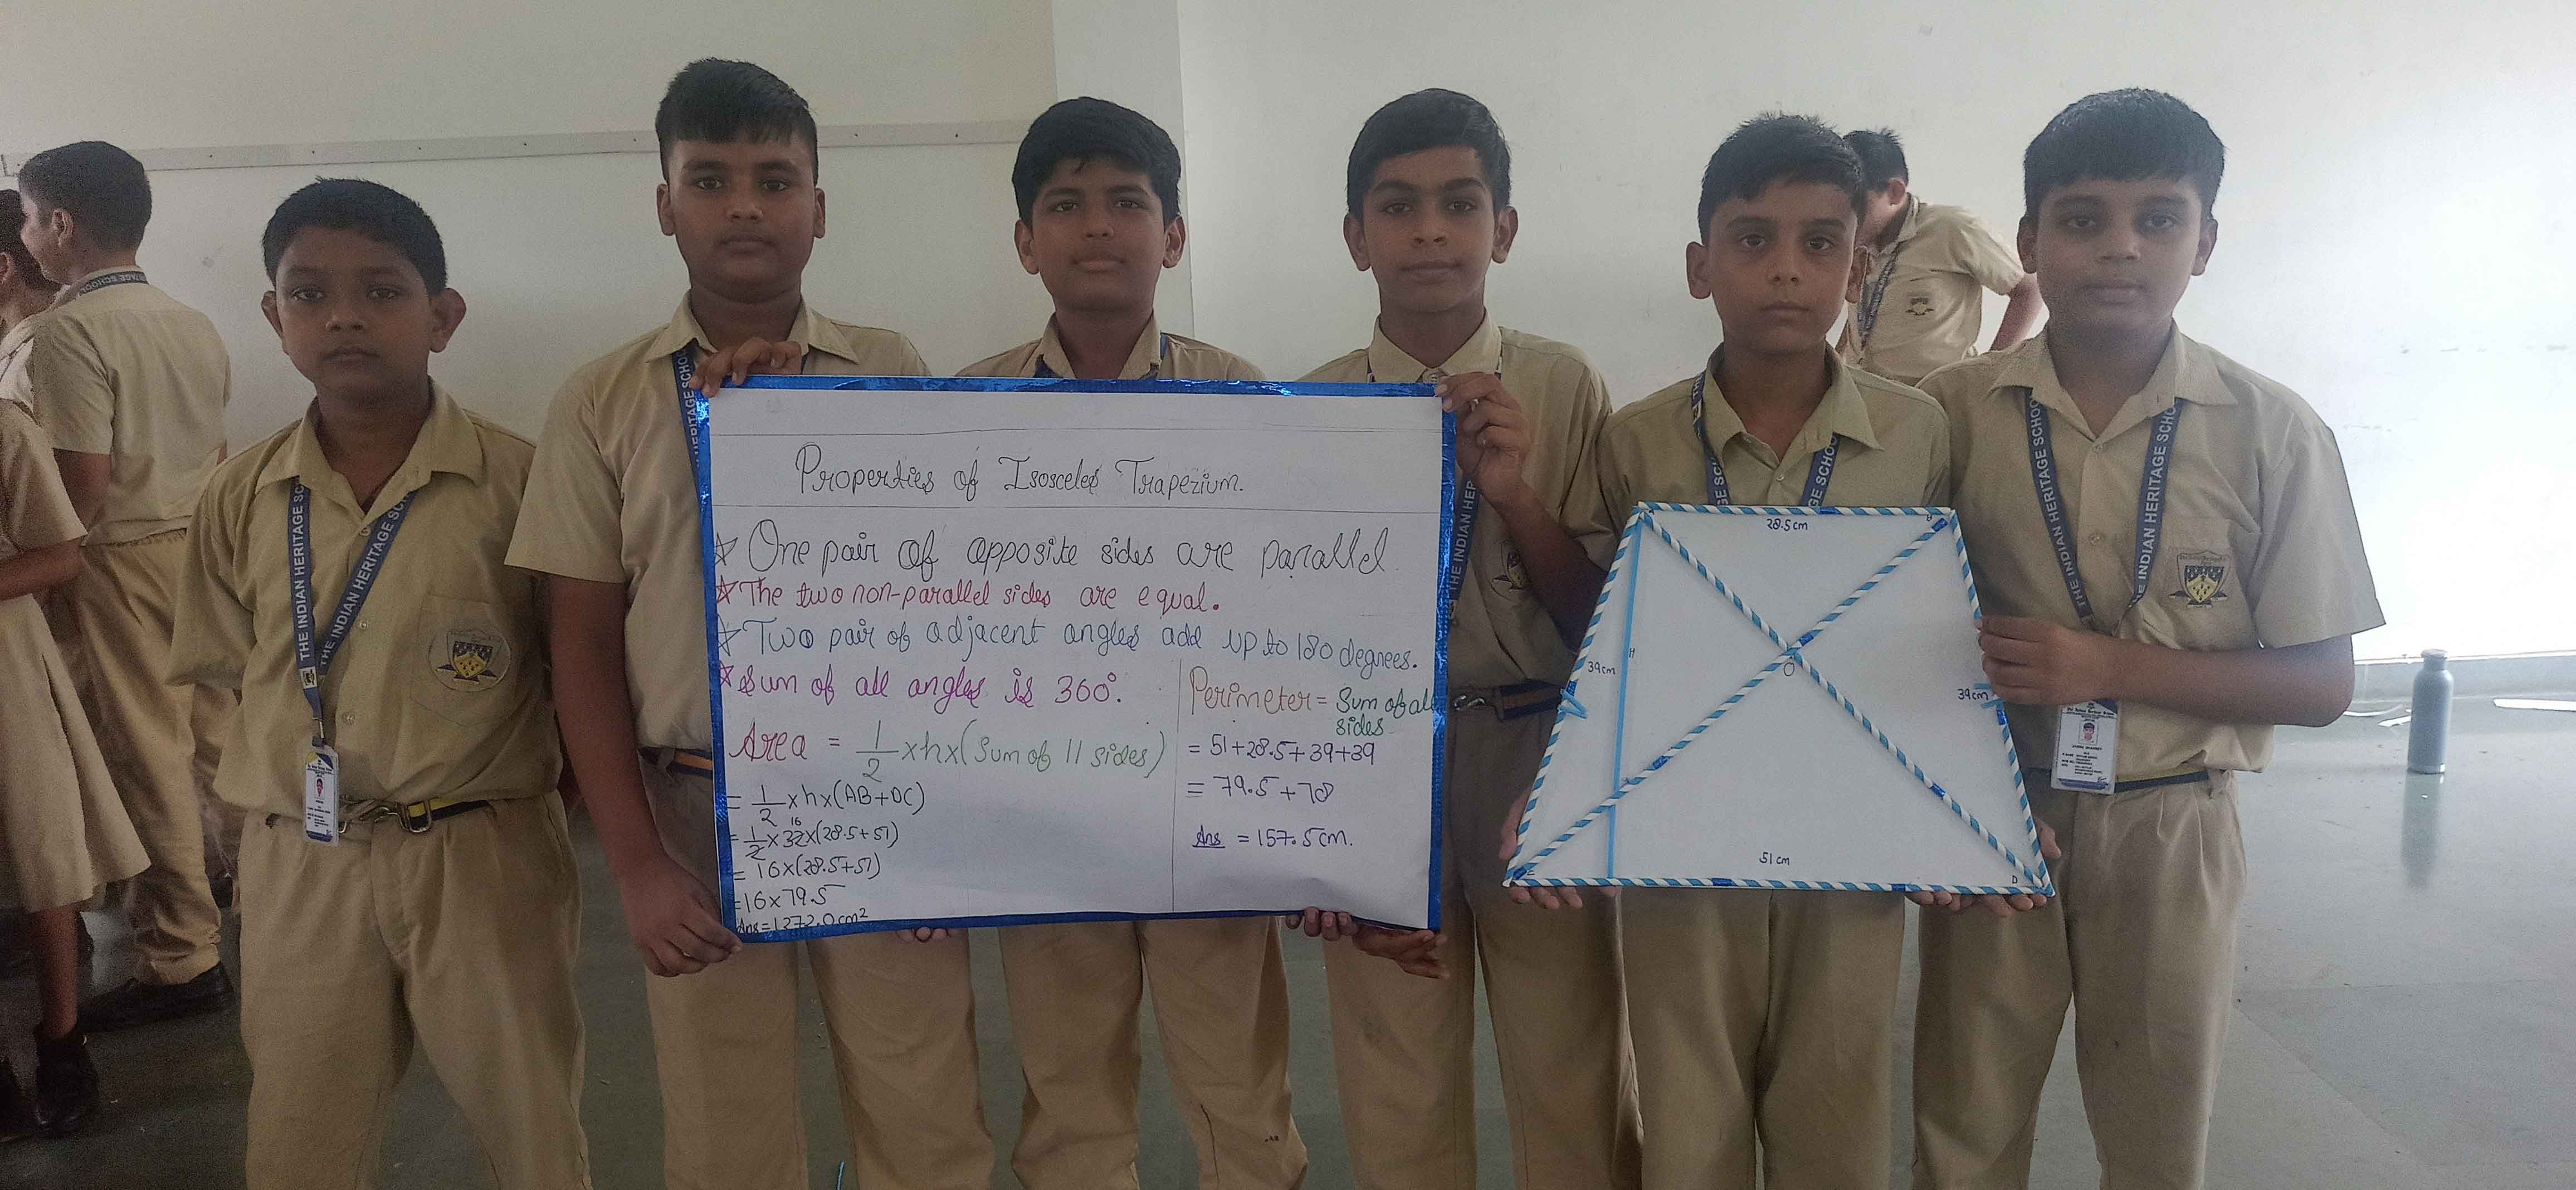 Properties of Isosceles Trapezium.
☆ One pair of opposite sides are parallel
☆ The two non-parallel sides are equal.
☆ Two pair of adjacent angles add up to 180 degrees.
☆ Sum of all angles is 360°.
Area = 1/2 x h x (Sum of 11 sides)
= 1/2 x h x (AB+DC)
16
= 1/2 x 32 x (28.5+51)
= 16 x (28.5+51)
= 16 x 79.5
Ans = 1272.0 cm²
Perimeter = Sum of all
sides
= 51+28.5+39+39
= 79.5+78
Ans = 157.5 cm.
A
B
28.5 cm
H
39 cm
O
39 cm
51 cm
D
THE INDIAN HERITAGE SC
THE INDIAN HERITAGE SC
HERITAGE SCHO
THE INDIAN HER
E SCHO
GE SCHO
THE INDIAN HERITAGE SCHO
HE INDIAN HERITAGE SCH
RITAGE SCHOOL